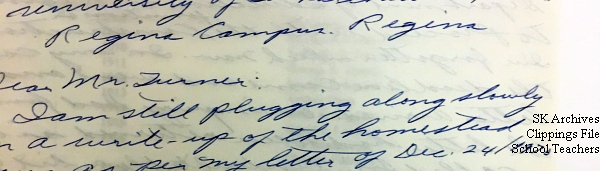 University of
Regina Campus. Regina
Dear Mr. Turner:
I am still plugging along slowly
a write-up of the homestead
as per my letter of Dec. 24/
SK Archives
Clippings File
School Teachers